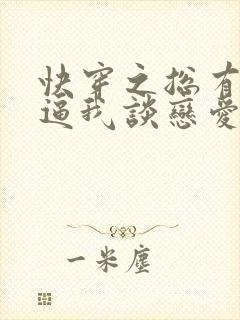 快穿之総有
逼我談戀愛
一米塵